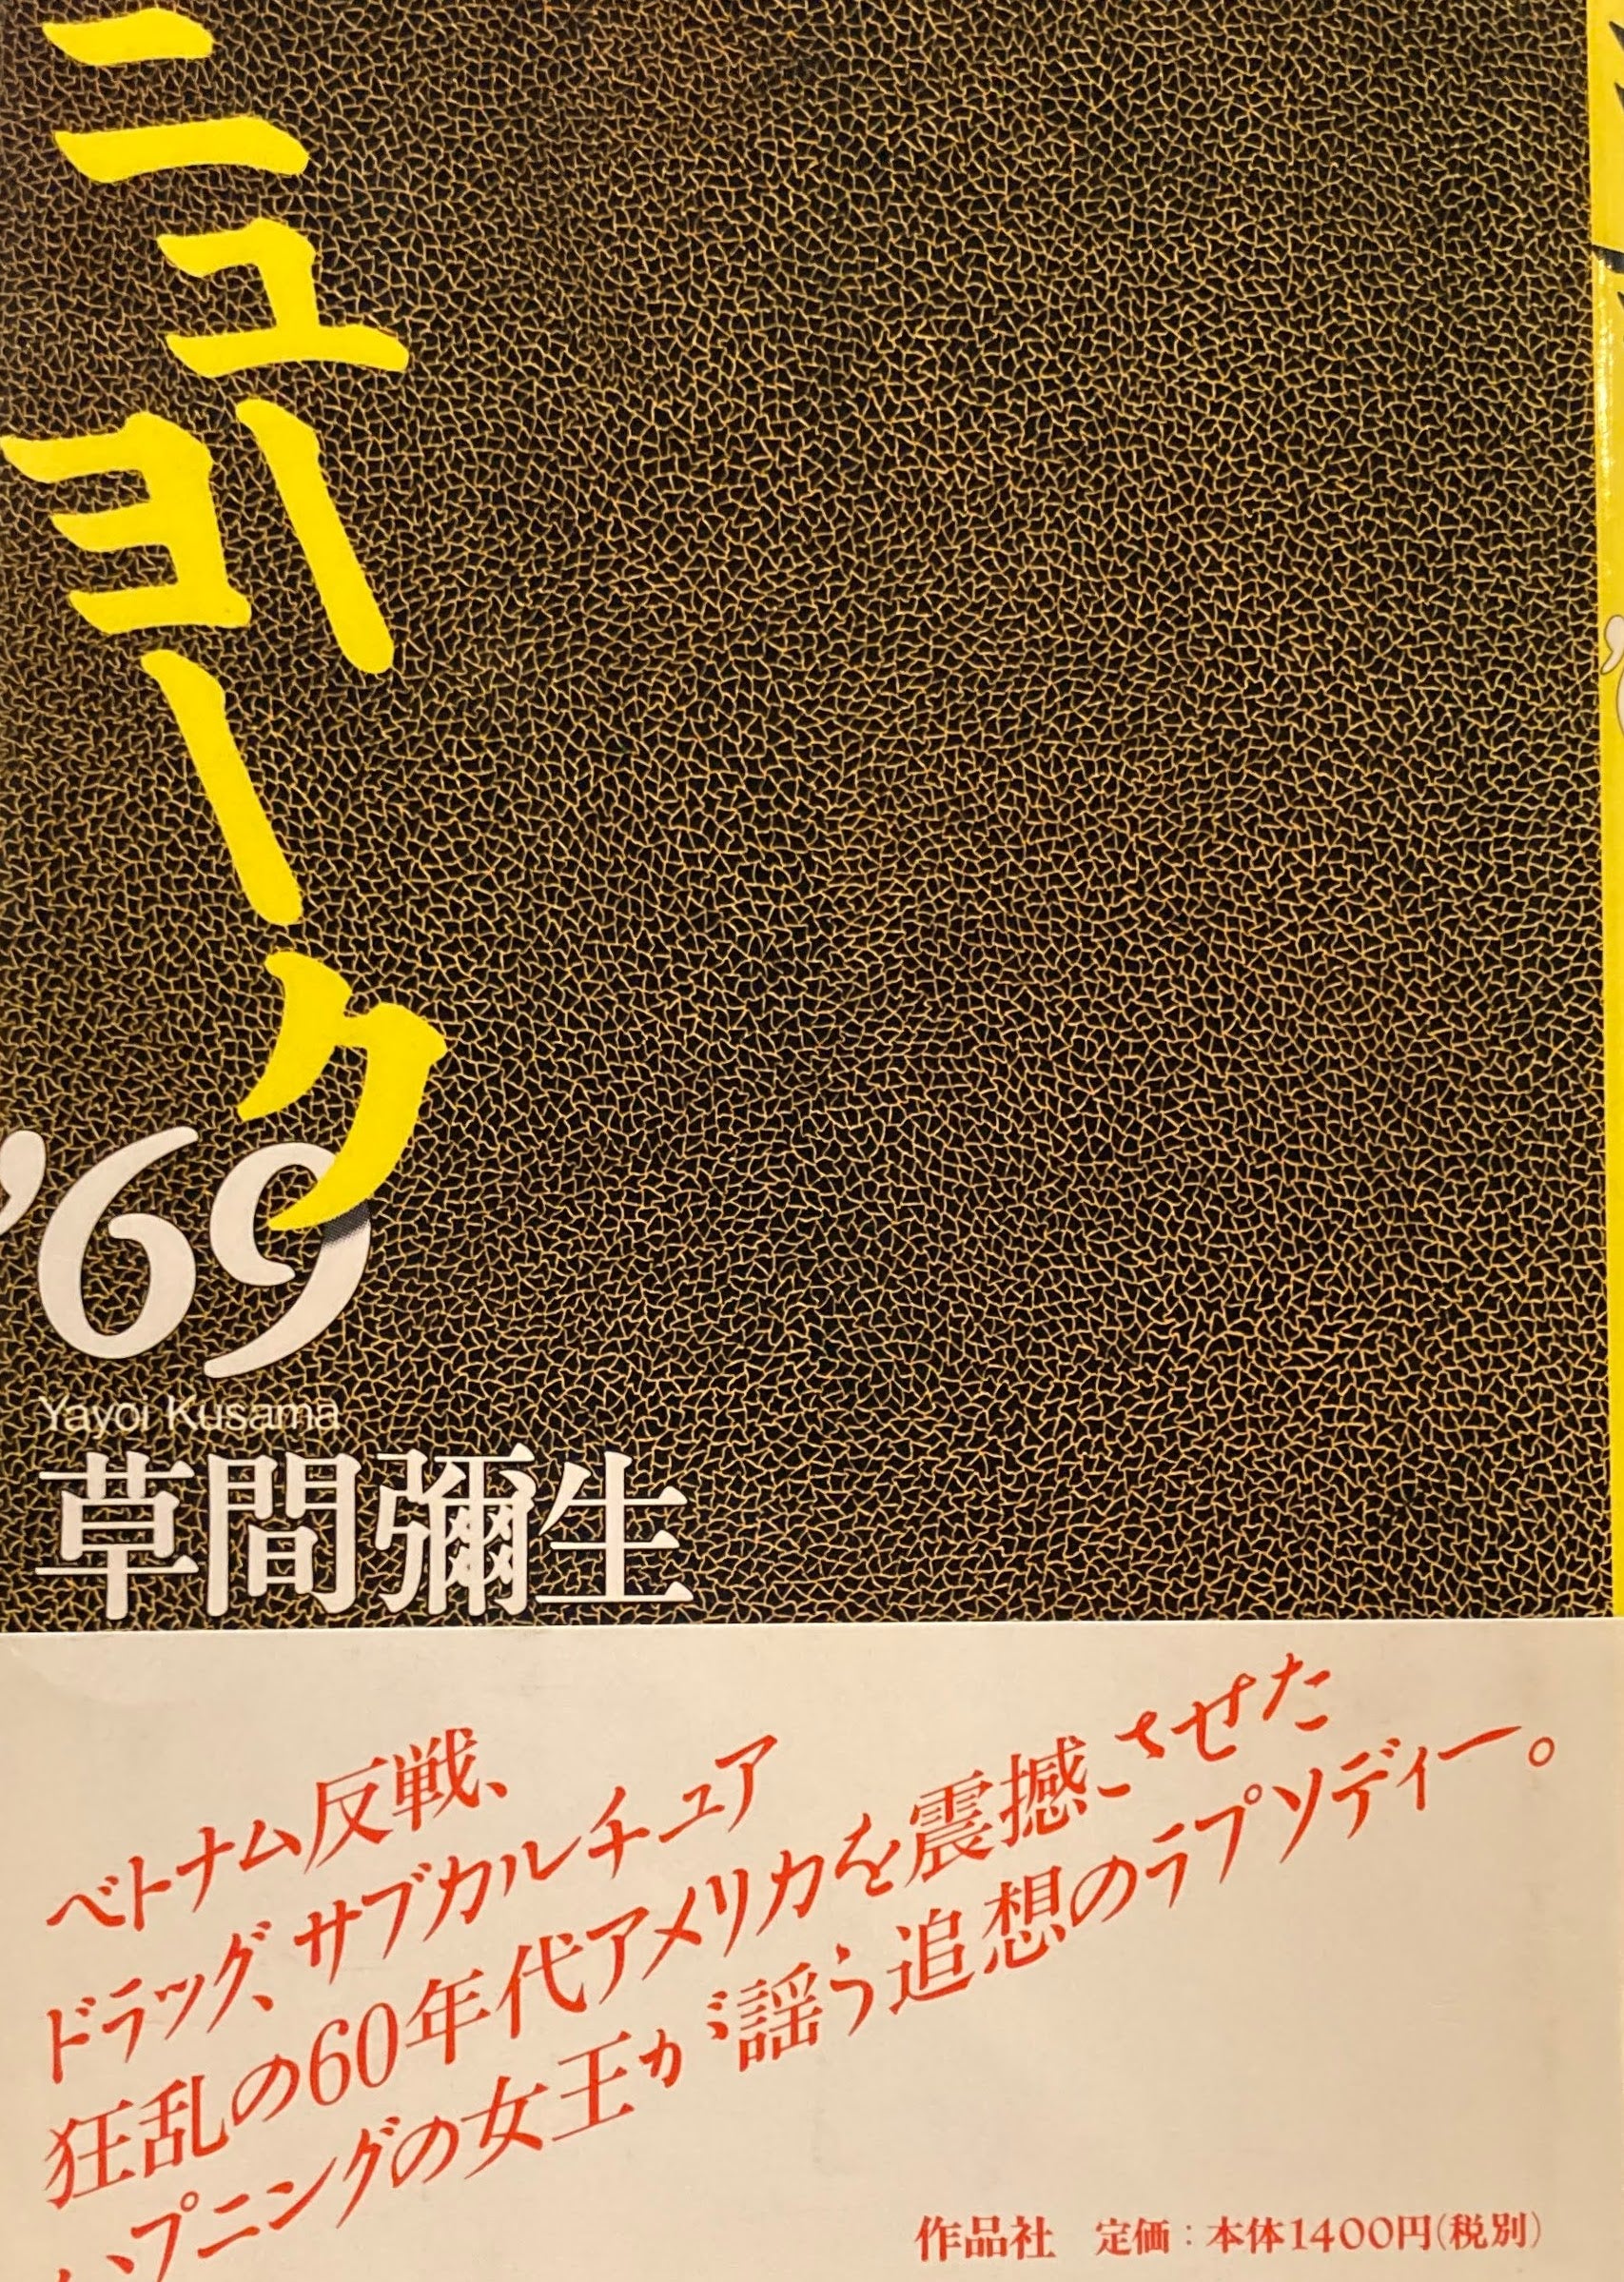 ニューヨーク
'69
Yayoi Kusama
草間彌生
ベトナム反戦、
ドラッグ、サブカルチュア
狂乱の60年代アメリカを震撼させた
ハプニングの女王が謡う追想のラプソディー。
作品社 定価:本体1400円(税別)